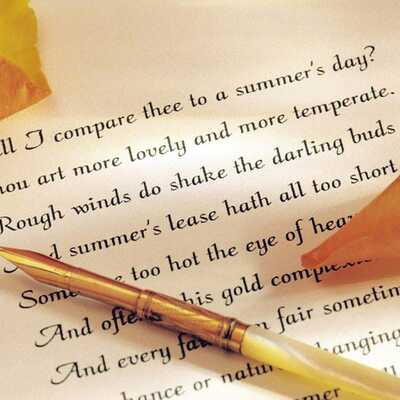 ll I compare thee to a summer's day?
hou art more lovely and more temperate.
Rough winds do shake the darling buds
d summer's lease hath all too short
Some too hot the eye of hea
And often his gold comple
And every fa n fair sometim
hance or natur changing
mer